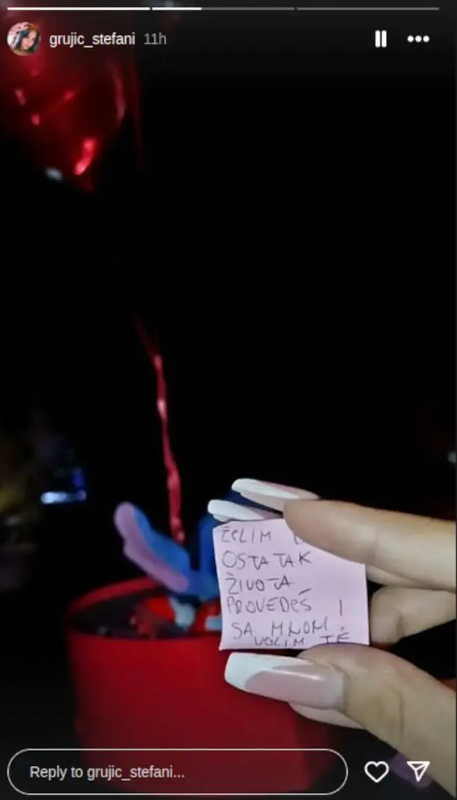 grujic_stefani 11h
ŽELIM
OSTATAK
ŽIVOTA
PROVEDEŠ
SA MNOM !
VOLIM TE
Reply to grujic_stefani...